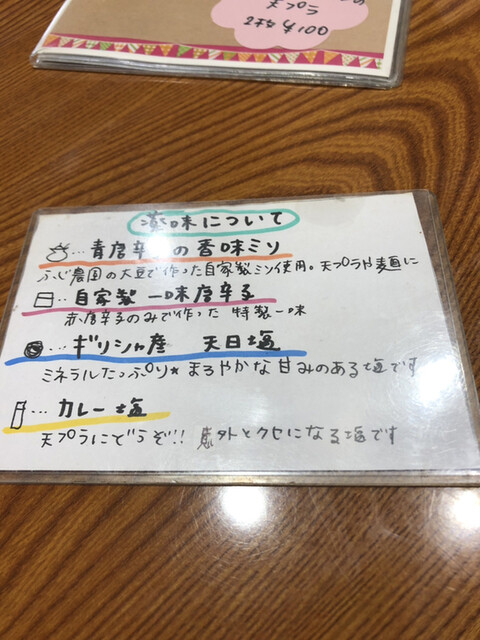 天プラ
2枚 ¥100
薬味について
… 青唐辛子の香味ミソ
ふじ農園の大豆で作った自家製ミソ使用。天プラや麺に
… 自家製 一味唐辛子
赤唐辛子のみで作った 特製一味
… ギリシャ産 天日塩
ミネラルたっぷり★まろやかな甘みのある塩です
… カレー塩
天プラにどうぞ!! 意外とクセになる塩です